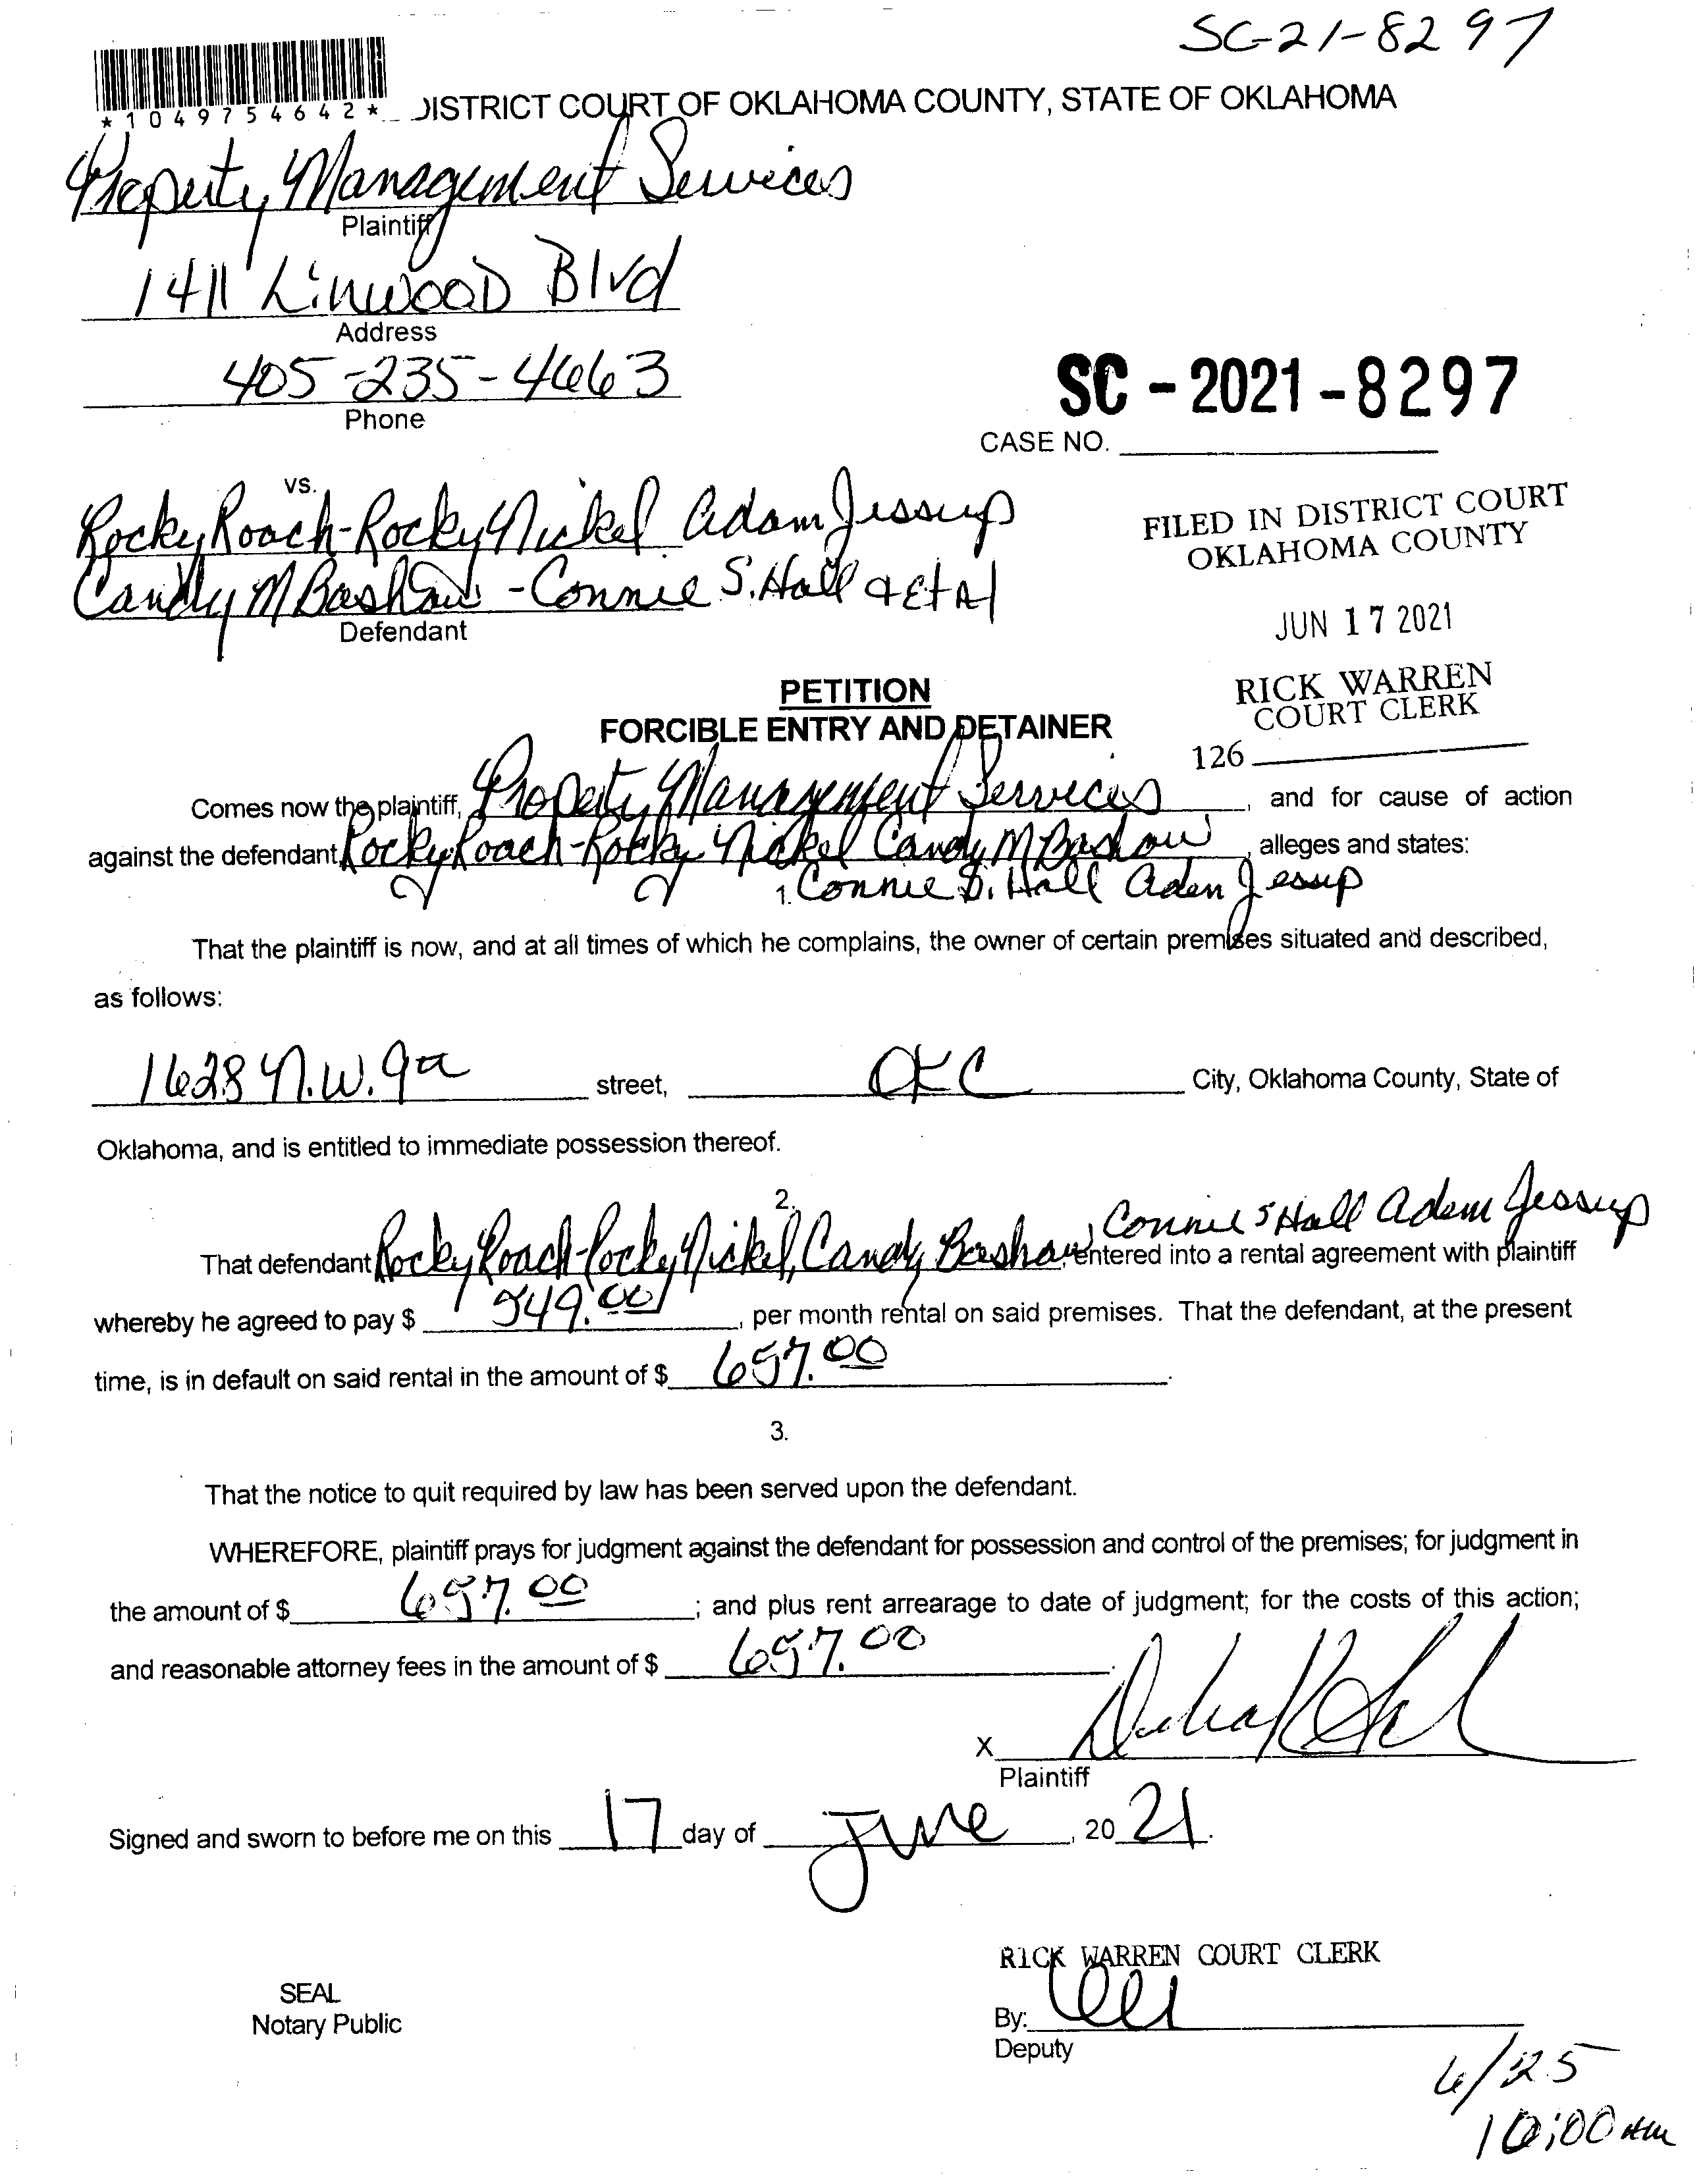 SC-21-8297
*1049754642*
DISTRICT COURT OF OKLAHOMA COUNTY, STATE OF OKLAHOMA
Property Management Services
Plaintiff
1411 Linwood Blvd
Address
405-235-4663
Phone
SC-2021-8297
CASE NO.
vs.
Rocky Roach-Rocky Nickel Adam Jessup
Candy M Bashaw - Connie S. Hall & Et Al
Defendant
FILED IN DISTRICT COURT
OKLAHOMA COUNTY
JUN 17 2021
RICK WARREN
COURT CLERK
126
PETITION
FORCIBLE ENTRY AND DETAINER
Comes now the plaintiff, Property Management Services, and for cause of action
against the defendant Rocky Roach-Rocky Nickel Candy M Bashaw, alleges and states:
1. Connie S. Hall Aden Jessup
That the plaintiff is now, and at all times of which he complains, the owner of certain premises situated and described,
as follows:
1628 N.W. 9 street, OKC City, Oklahoma County, State of
Oklahoma, and is entitled to immediate possession thereof.
2.
Connie S Hall Adam Jessup
That defendant Rocky Roach-Rocky Nickel, Candy Bashaw, entered into a rental agreement with plaintiff
whereby he agreed to pay $ 549.00, per month rental on said premises. That the defendant, at the present
time, is in default on said rental in the amount of $ 657.00.
3.
That the notice to quit required by law has been served upon the defendant.
WHEREFORE, plaintiff prays for judgment against the defendant for possession and control of the premises; for judgment in
the amount of $ 657.00; and plus rent arrearage to date of judgment; for the costs of this action;
and reasonable attorney fees in the amount of $ 657.00.
X
Plaintiff
Signed and sworn to before me on this 17 day of June, 2021.
RICK WARREN COURT CLERK
SEAL
Notary Public
By:
Deputy
6/25
10:00 am